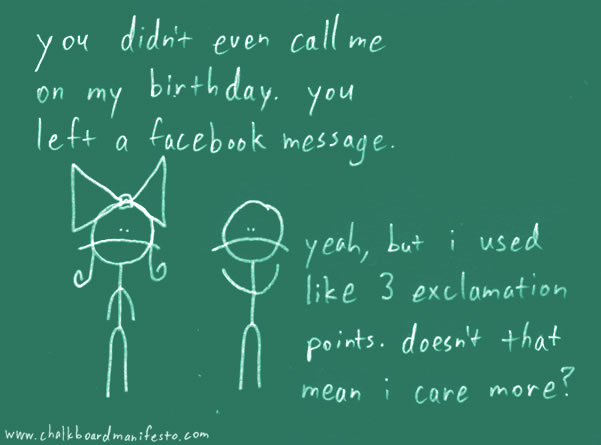 you didn't even call me
on my birthday. you
left a facebook message.
yeah, but i used
like 3 exclamation
points. doesn't that
mean i care more?
www.chalkboardmanifesto.com